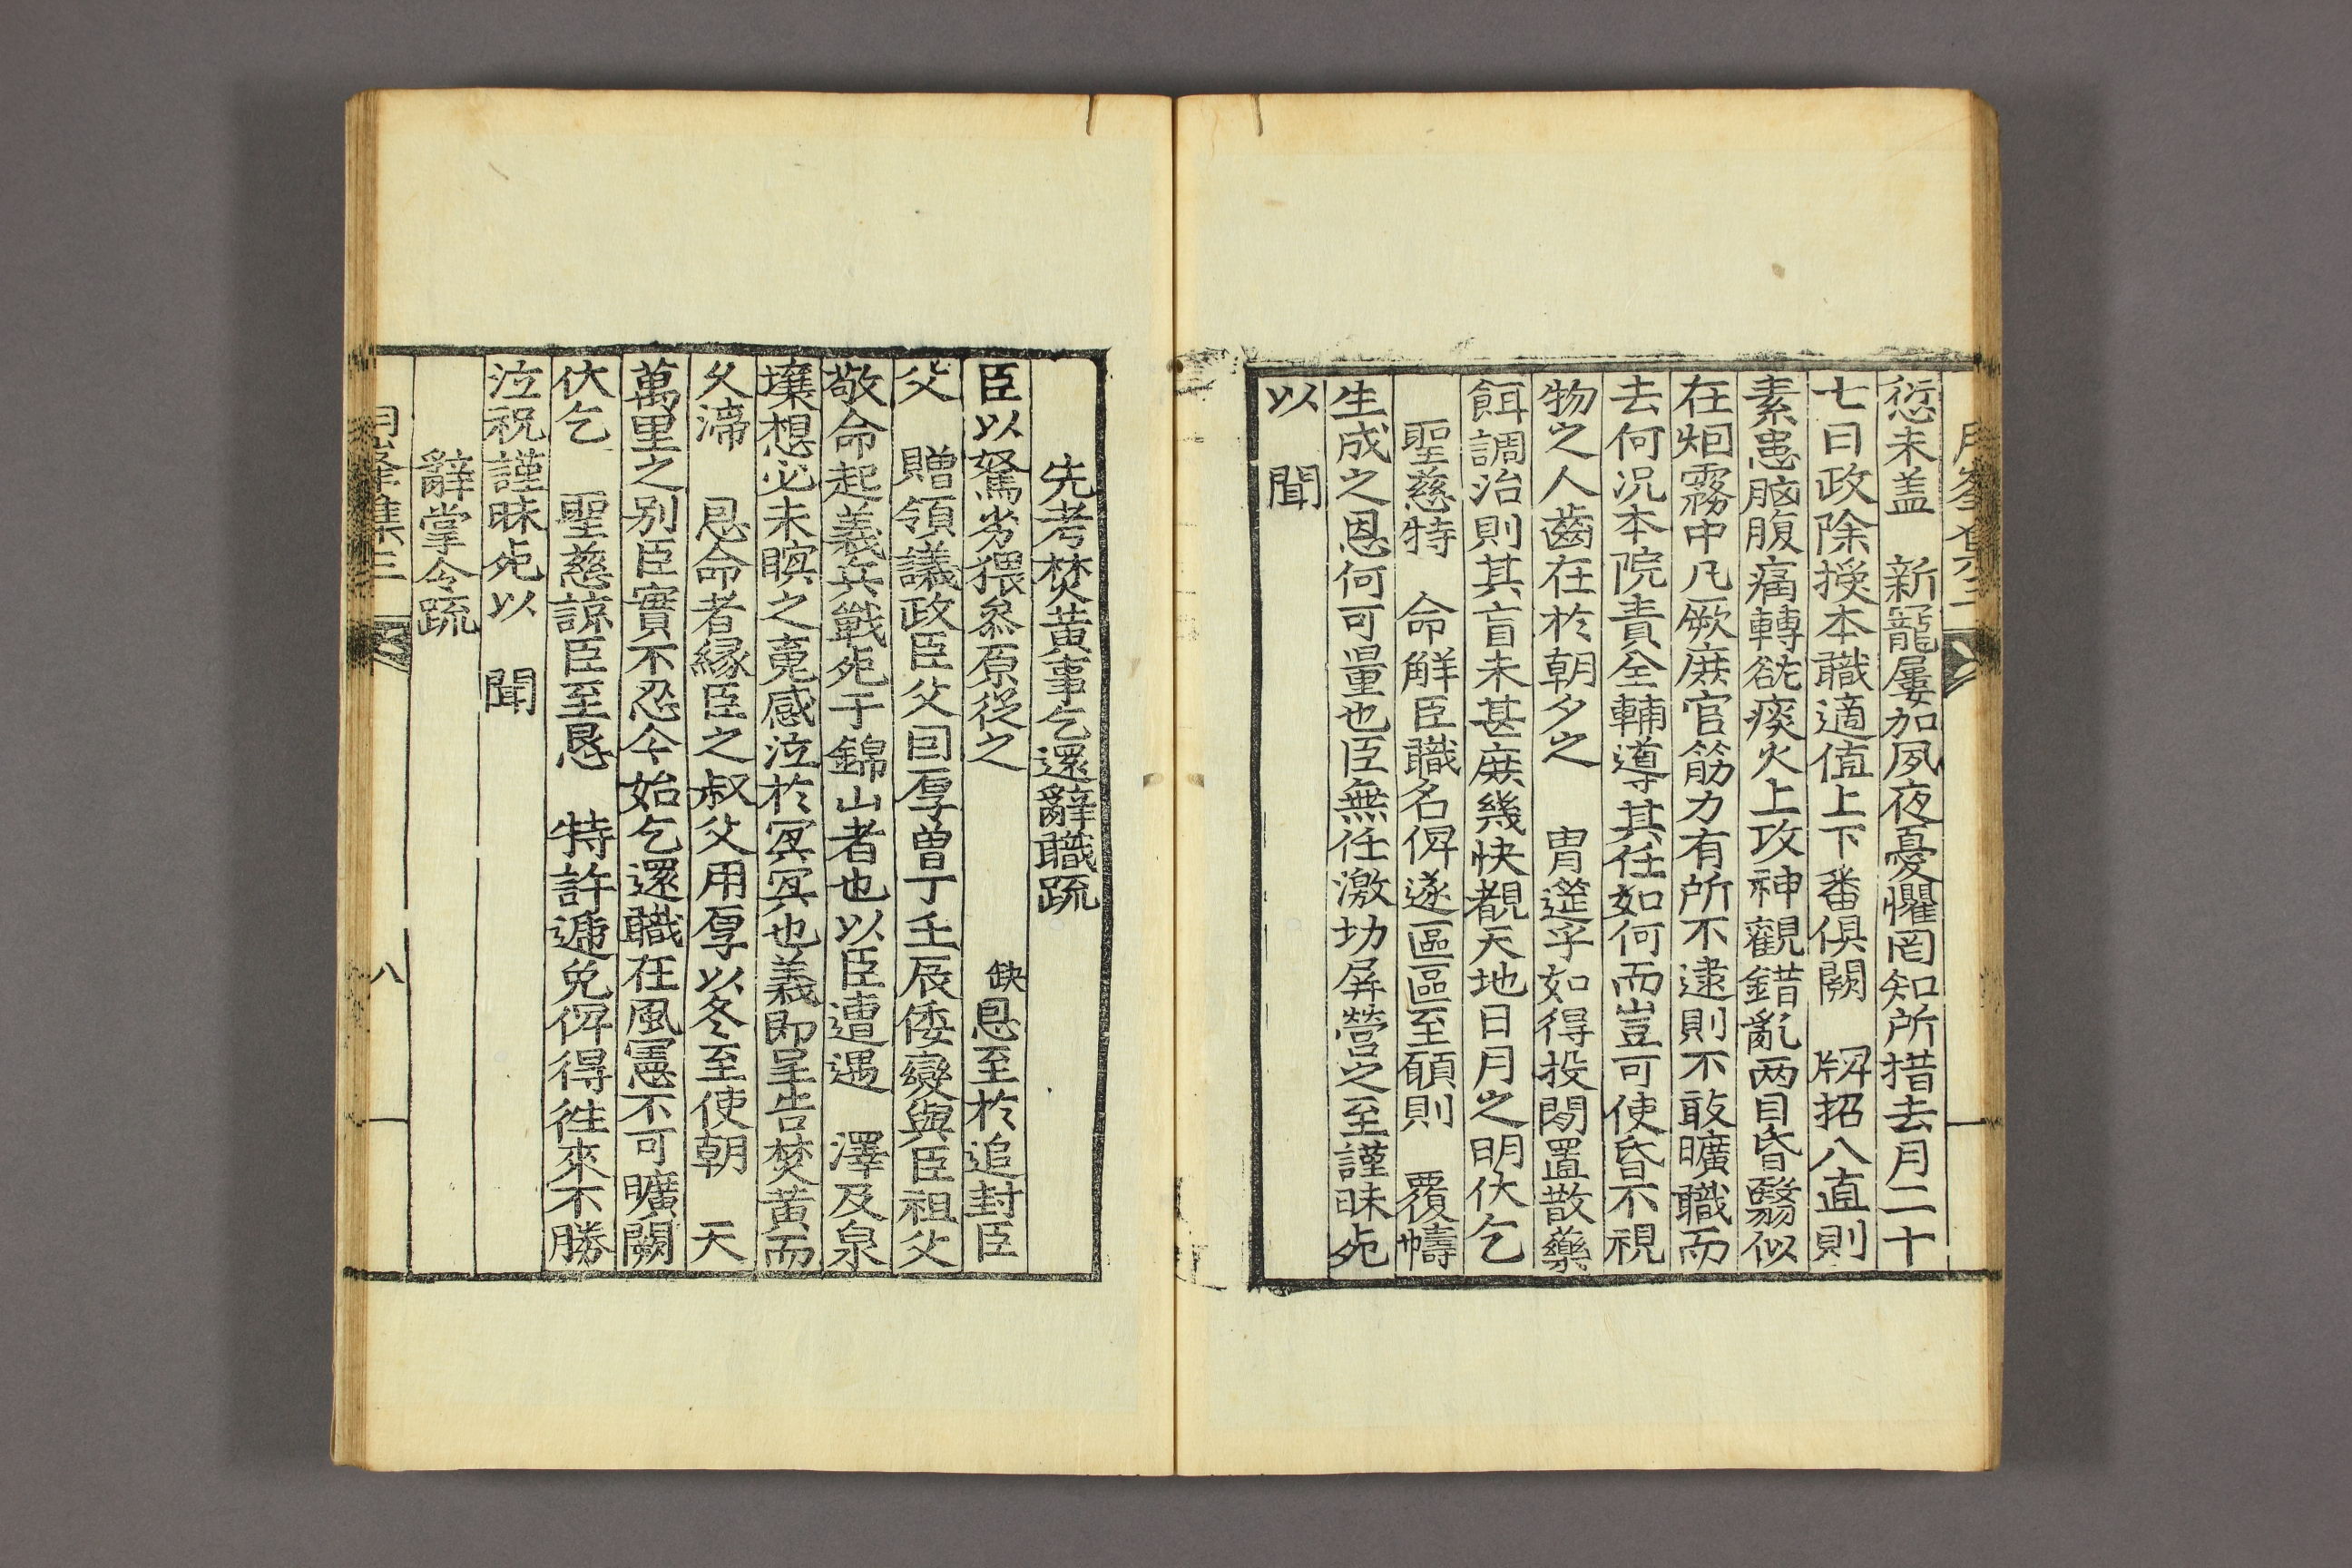 愆未盖 新寵屢加夙夜憂懼罔知所措去月二十
七日政除授本職適值上下番俱闕 牌招入直則
素患脑腹痛轉欲痰火上攻神觀錯亂两目昏翳似
在烟霧中凡厥庶官筋力有所不逮則不敢曠職而
去何况本院責全輔導其任如何而豈可使昏不視
物之人齒在於朝夕之 胄筵乎如得投閑置散藥
餌調治則其盲未甚庶幾快覩天地日月之明伏乞
聖慈特 命觧臣職名俾遂區區至願則 覆幬
生成之恩何可量也臣無任激切屏營之至謹昧死
以 聞
先考焚黄事乞還辭職疏
臣以駑劣猥叅原從之 缺 恩至於追封臣
父 贈領議政臣父 厚曾丁壬辰倭變與臣祖父
敬命起義兵戰死于錦山者也以臣遭遇 澤及泉
壤想必未瞑之䰟感泣於冥冥也義即呈告焚黄而
久滯 恩命者緣臣之叔父用厚以冬至使朝 天
萬里之别臣實不忍今始乞還職在風憲不可曠闕
伏乞 聖慈諒臣至恳 特許遞免俾得徃來不勝
泣祝謹昧死以 聞
辭掌令疏
集三 八